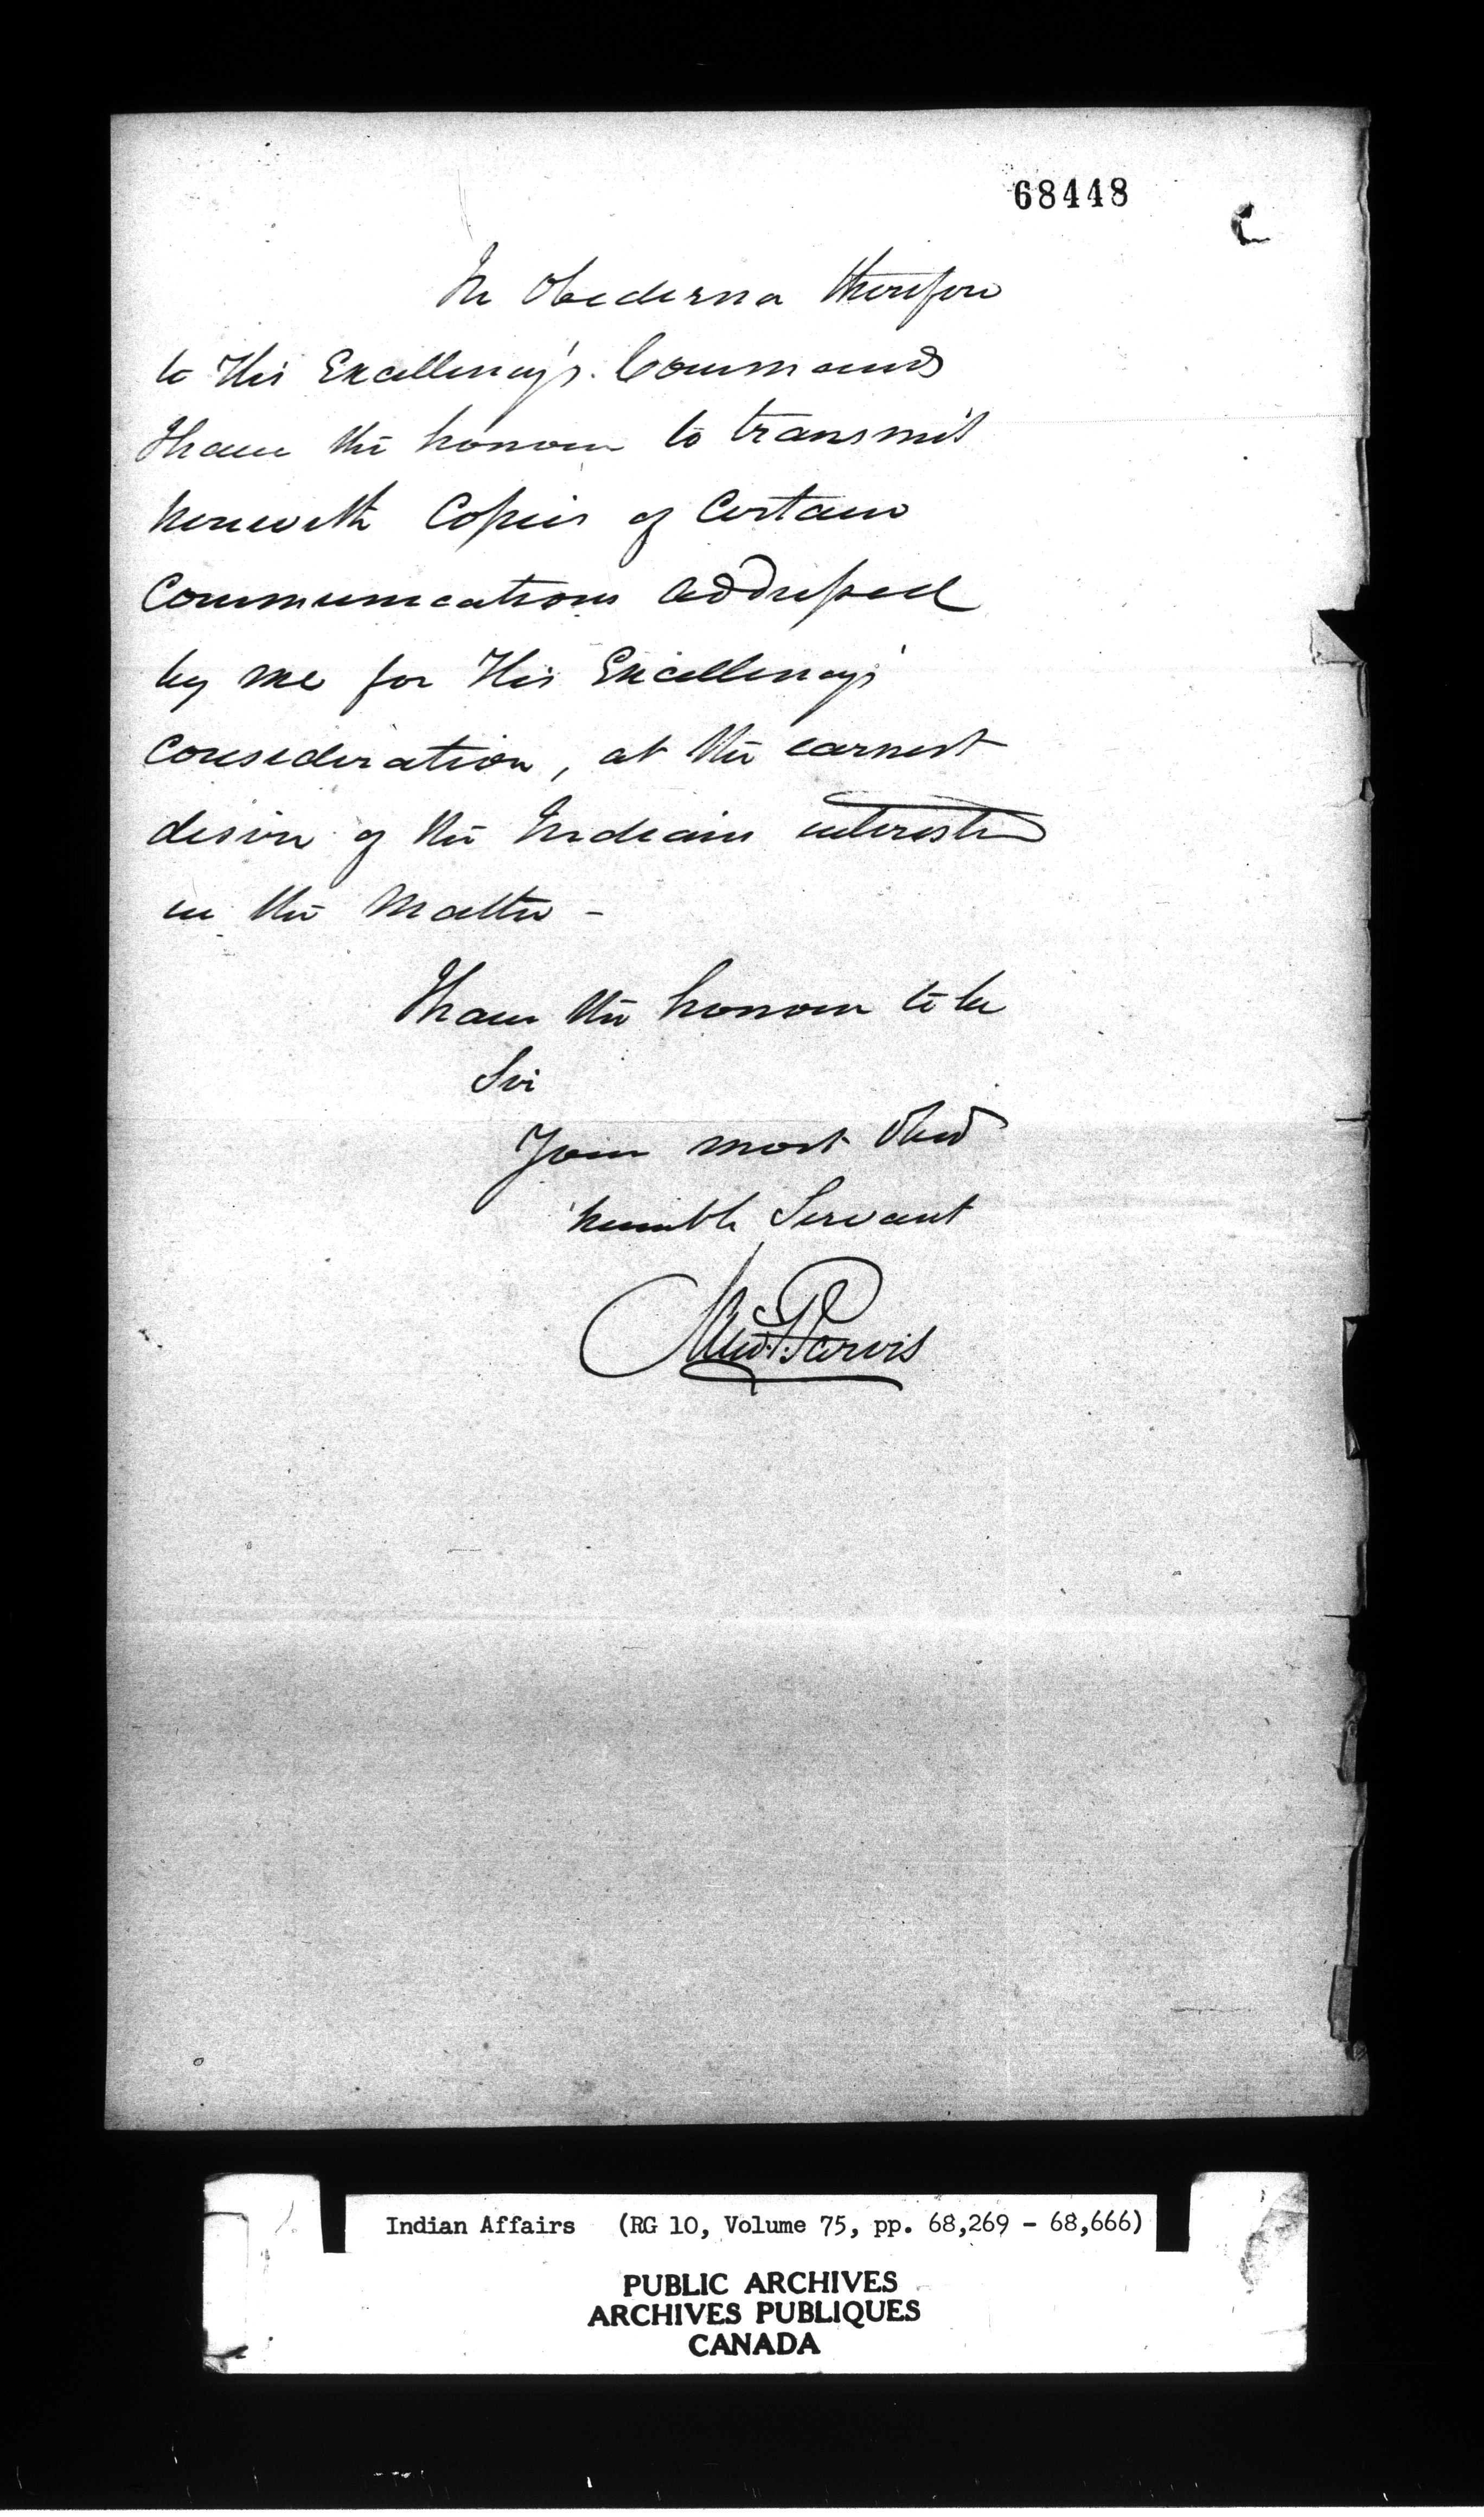 68448
In Obedience therefore
to His Excellency's Commands
I have the honour to transmit
herewith Copies of Certain
Communications addressed
by me for His Excellency's
Consideration, at the earnest
desire of the Indians interested
in the Matter -
I have the honour to be
Sir
Your most Obed
humble Servant
Jarvis
Indian Affairs (RG 10, Volume 75, pp. 68,269 - 68,666)
PUBLIC ARCHIVES
ARCHIVES PUBLIQUES
CANADA